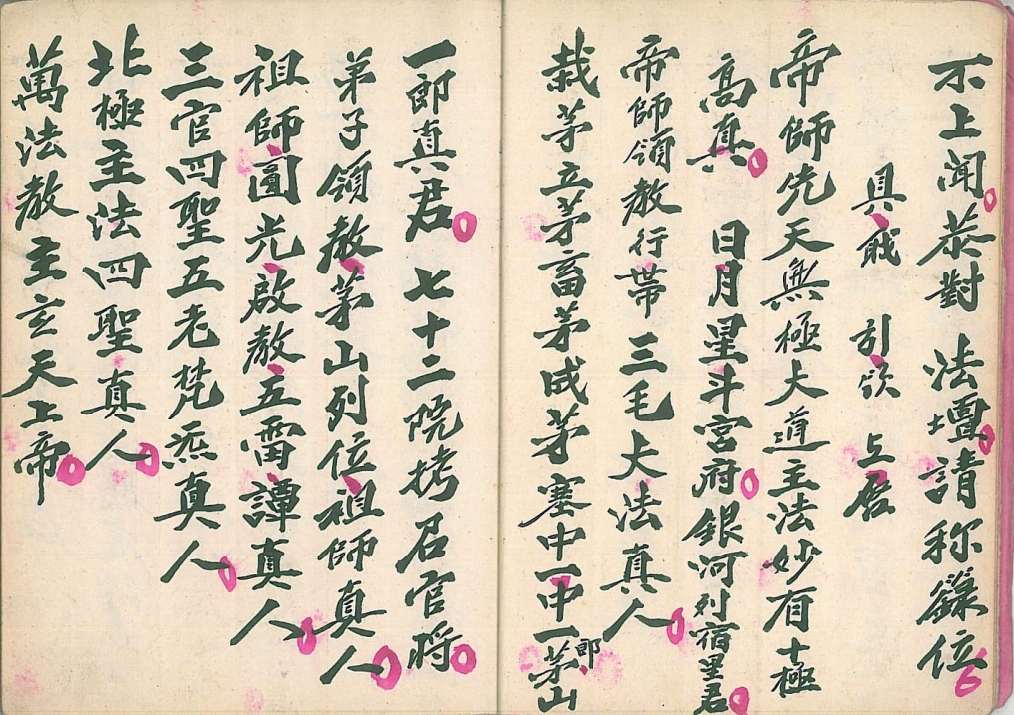 不上闻恭對 法壇請称籙位
具戝 引欱 上啓
帝師先天無極大道主法妙有十極
高真 日月星斗宮府銀河列宿星君
帝師領教行帶三毛大法真人
栽茅立茅畜茅成茅塞中一中一郎茅山
一郎真君 七十二院拷召官將
弟子領教茅山列位祖師真人
祖師圓光啟教五雷譚真人
三官四聖五老梵炁真人
北極主法四聖真人
萬法教主玄天上帝